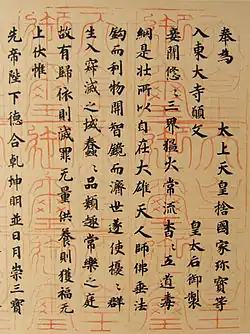 奉為　太上天皇捨國家珍寶等
入東大寺願文　皇太后御製
妾聞悠〻三界猛火常流杳〻五道毒
網是壯所以自在大雄天人師佛垂法
鈎而利物開智鏡而濟世遂使擾〻群
生入寂滅之域蠢〻品類趣常樂之庭
故有歸依則滅罪无量供養則獲福无
上伏惟
先帝陛下德合乾坤明並日月崇三寶